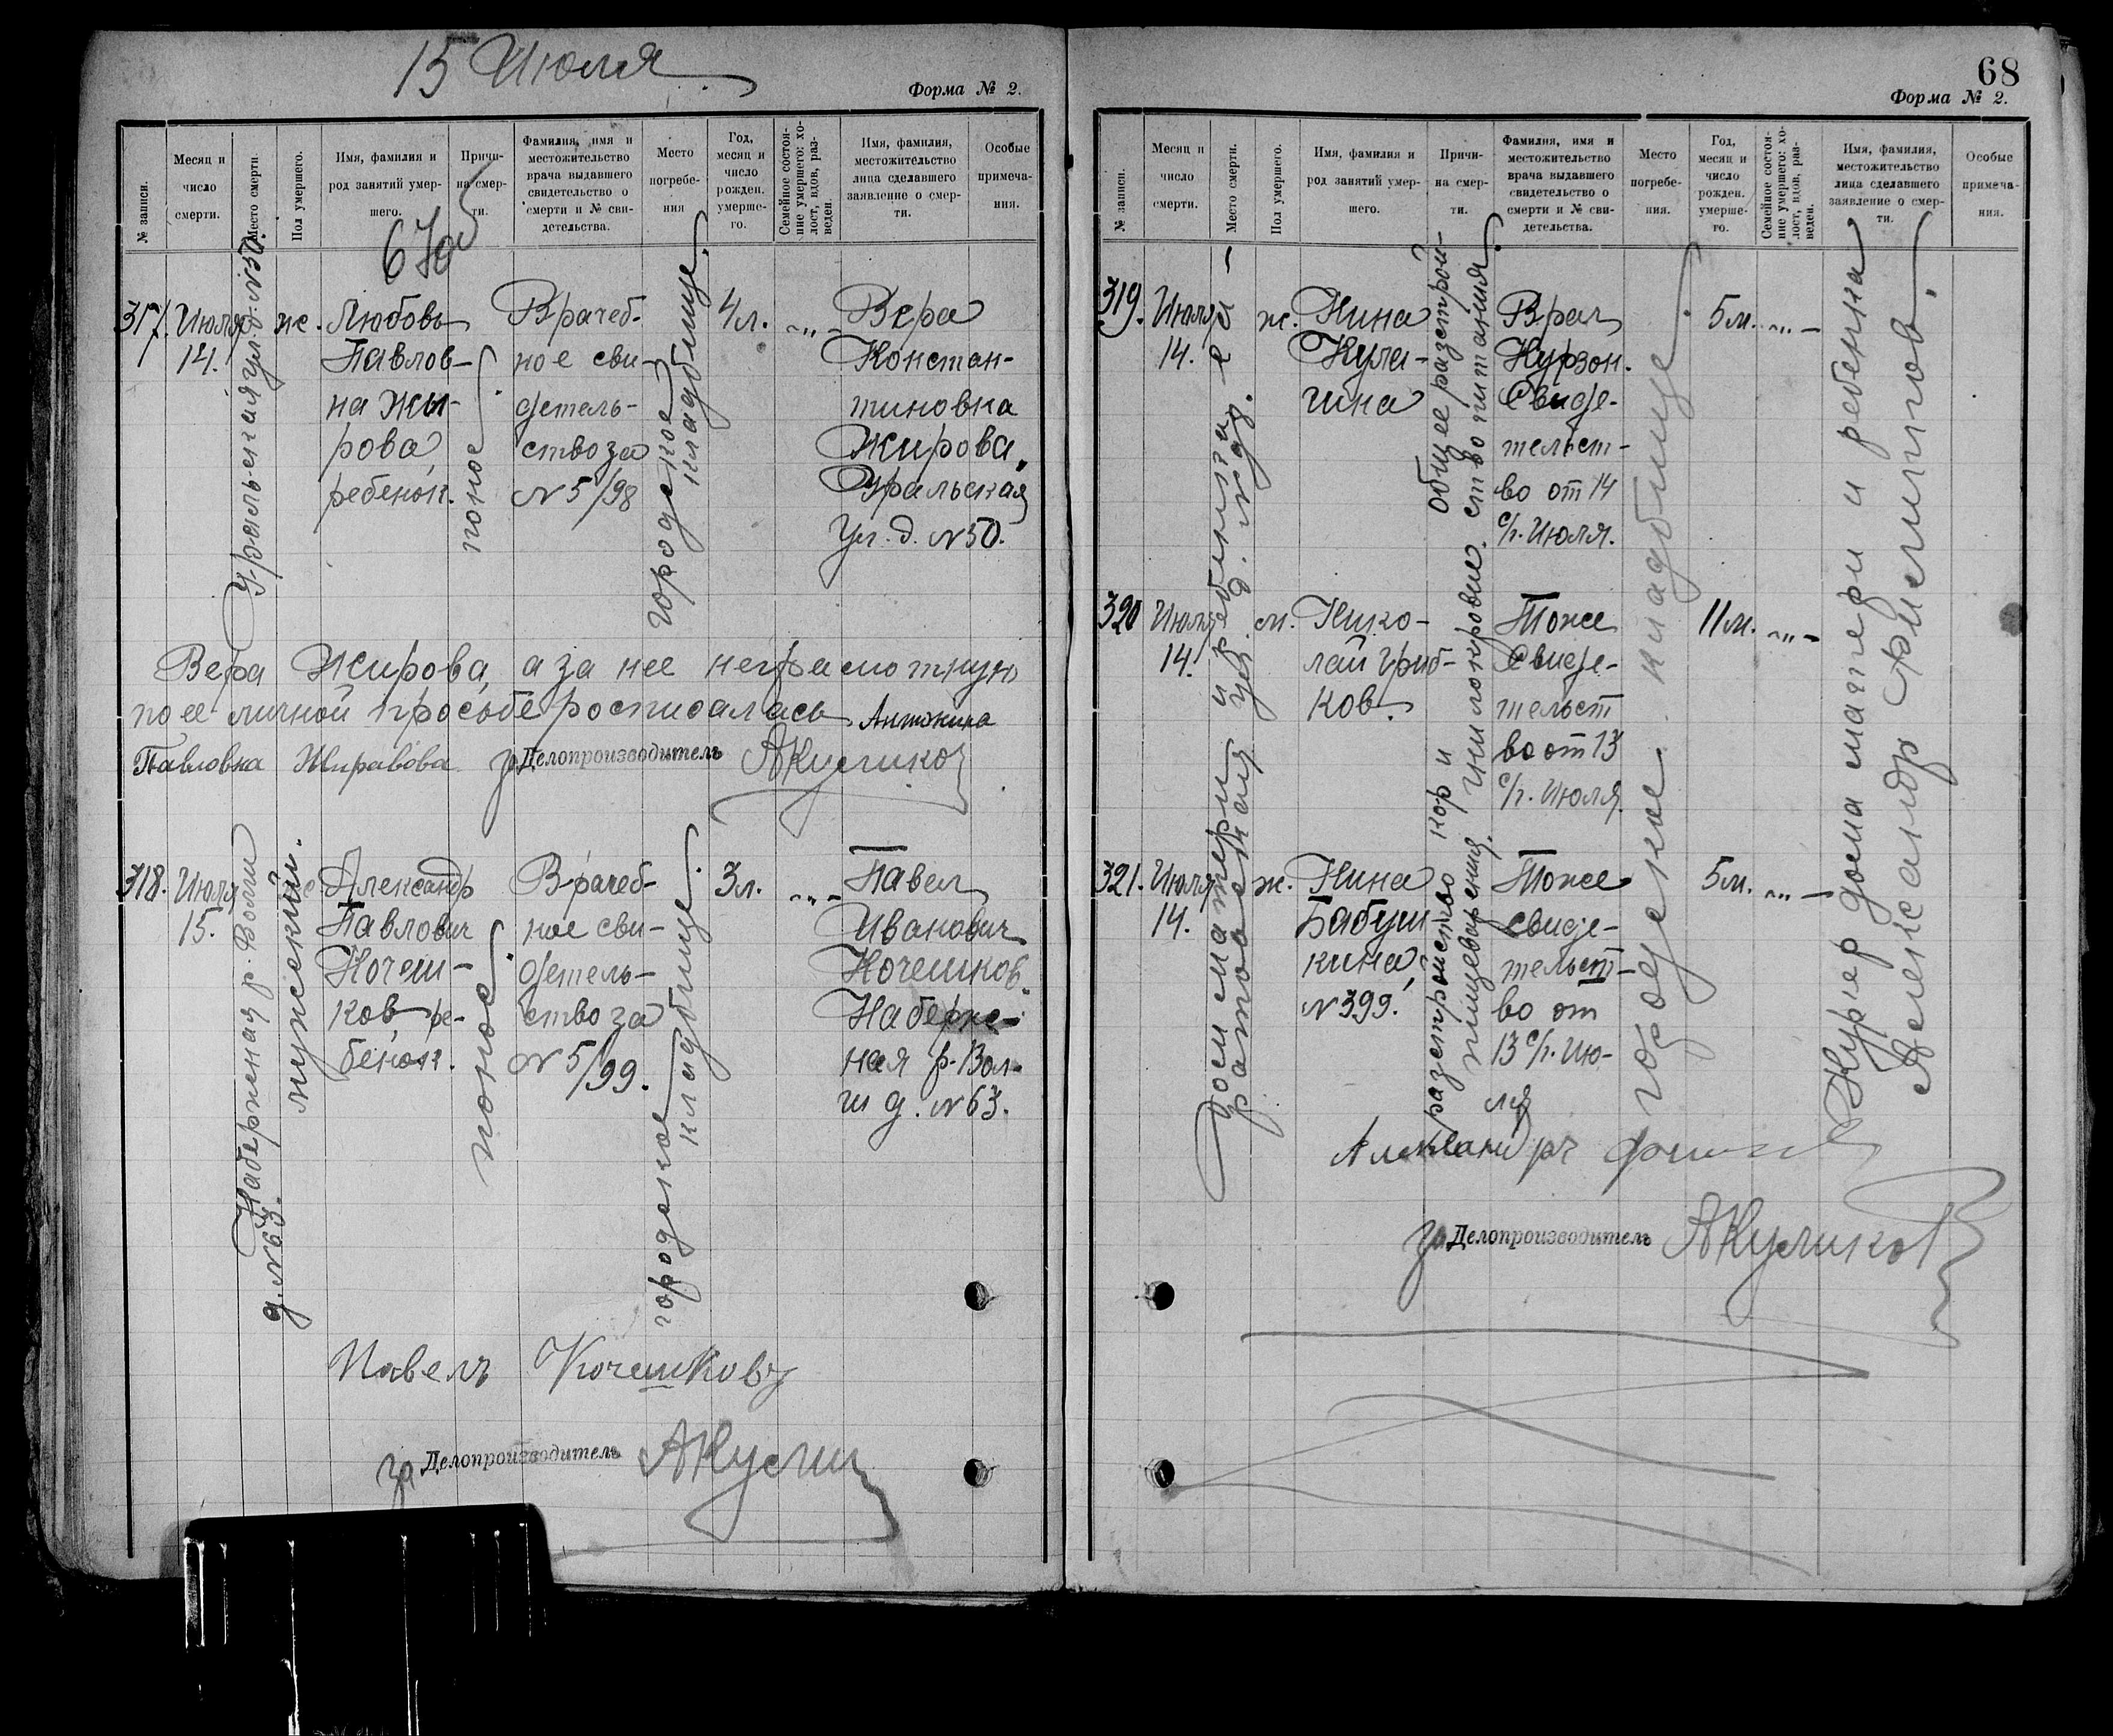 15 Июля
Форма № 2.
№ записи.
Месяц и
число
смерти.
Место смерти.
Пол умершего.
Имя, фамилия и
род занятий умер-
шего.
Причи-
на смер-
ти.
Фамилия, имя и
местожительство
врача выдавшего
свидетельство о
смерти и № сви-
детельства.
Место
погребе-
ния
Год,
месяц и
число
рожден.
умерше-
го.
Семейное состоя-
ние умершего: хо-
лост, вдов, раз-
веден.
Имя, фамилия,
местожительство
лица сделавшего
заявление о смер-
ти.
Особые
примеча-
ния.
67об
317.
Июля
14.
Уральская ул. д. №50.
же.
Любовь
Павлов-
на Жы-
рова
ребенок.
понос
Врачеб-
ное сви-
детель-
ство за
№ 5/98
городское
кладбище.
4л.
-„-
Вера
Констан-
тиновна
Жирова,
Уральская
ул. д. №50.
Вера Жирова, а за нее неграмотную
по ее личной просьбе росписалась Антонина
Павловна Жиравова
за Делопроизводитель АКуликов
318.
Июля
15.
Набережная р. Волги
д. №63.
мужской.
Александр
Павлович
Кочеш-
ков, ре-
бенок.
понос
Врачеб-
ное сви-
детель-
ство за
№ 5/99.
городское
кладбище.
3л.
-„-
Павел
Иванович
Кочешков.
Набереж-
ная р. Вол-
ги д. №63.
Павелъ Кочешковъ
за Делопроизводитель АКули
68
Форма № 2.
№ записи.
Месяц и
число
смерти.
Место смерти.
Пол умершего.
Имя, фамилия и
род занятий умер-
шего.
Причи-
на смер-
ти.
Фамилия, имя и
местожительство
врача выдавшего
свидетельство о
смерти и № сви-
детельства.
Место
погребе-
ния.
Год,
месяц и
число
рожден.
умерше-
го.
Семейное состоя-
ние умершего: хо-
лост, вдов, раз-
веден.
Имя, фамилия,
местожительство
лица сделавшего
заявление о смер-
ти.
Особые
примеча-
ния.
319.
Июля
14.
Дом матери и ребенка
ул. д. №
ж.
Нина
Кула-
гина
общее разстрой-
ство питания.
Врач
Курзон.
Свиде-
тельст-
во от 14
с/г. Июля.
городское кладбище
5м.
-„-
Курьер дома матери и ребенка
Александр
320
Июля
14.
м.
Нико-
лай Гриб-
ков.
Тоже
Свиде-
тельст
во от 13
с/г. Июля.
11м.
-„-
321.
Июля
14.
ж.
Нина
Бабуш-
кина,
№399.
разстройство
пищеварения.
Тоже
свиде-
тельст-
во от
13 с/г. Ию-
ля
5м.
-„-
за Делопроизводитель АКуликов